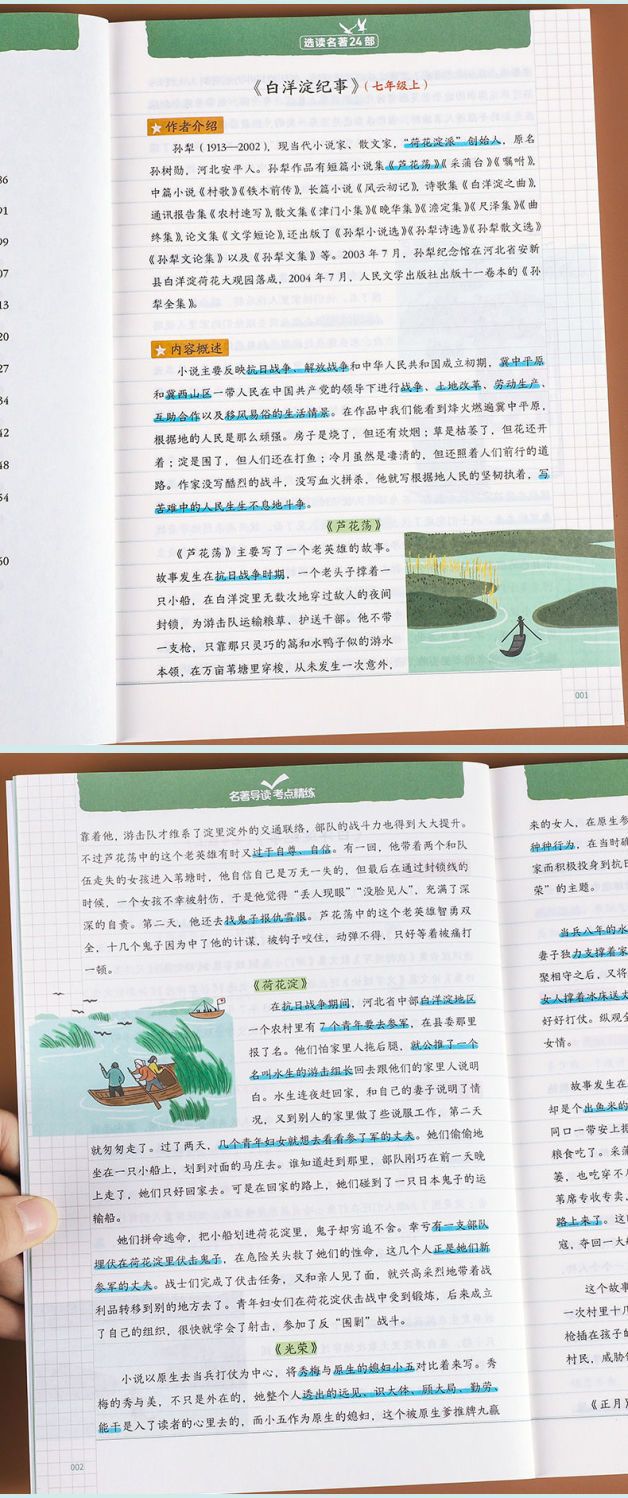 选读名著24部
《白洋淀纪事》(七年级上)
作者介绍
孙犁(1913—2002),现当代小说家、散文家,“荷花淀派”创始人,原名
孙树勋,河北安平人。孙犁作品有短篇小说集《芦花荡》《采蒲台》《嘱咐》,
中篇小说《村歌》《铁木前传》,长篇小说《风云初记》,诗歌集《白洋淀之曲》,
通讯报告集《农村速写》,散文集《津门小集》《晚华集》《澹定集》《尺泽集》《曲
终集》,论文集《文学短论》,还出版了《孙犁小说选》《孙犁诗选》《孙犁散文选》
《孙犁文论集》以及《孙犁文集》等。2003年7月,孙犁纪念馆在河北省安新
县白洋淀荷花大观园落成,2004年7月,人民文学出版社出版十一卷本的《孙
犁全集》。
内容概述
小说主要反映抗日战争、解放战争和中华人民共和国成立初期,冀中平原
和冀西山区一带人民在中国共产党的领导下进行战争、土地改革、劳动生产、
互助合作以及移风易俗的生活情景。在作品中我们能看到烽火燃遍冀中平原,
根据地的人民是那么顽强。房子是烧了,但还有炊烟;草是枯萎了,但花还开
着;淀是围了,但人们还在打鱼;冷月虽然是凄清的,但还照着人们前行的道
路。作家没写酷烈的战斗,没写血火拼杀,他就写根据地人民的坚韧执着,写
苦难中的人民生生不息地斗争。
《芦花荡》
《芦花荡》主要写了一个老英雄的故事。
故事发生在抗日战争时期,一个老头子撑着一
只小船,在白洋淀里无数次地穿过敌人的夜间
封锁,为游击队运输粮草、护送干部。他不带
一支枪,只靠那只灵巧的篙和水鸭子似的游水
本领,在万亩苇塘里穿梭,从未发生一次意外,
001
86
91
99
07
13
20
27
34
42
48
54
60
名著导读 考点精练
靠着他,游击队才维系了淀里淀外的交通联络,部队的战斗力也得到大大提升。
不过芦花荡中的这个老英雄有时又过于自尊、自信。有一回,他带着两个和队
伍走失的女孩进入苇塘时,他自信自己是万无一失的,但最后在通过封锁线的
时候,一个女孩不幸被射伤,于是他觉得“丢人现眼”“没脸见人”,充满了深
深的自责。第二天,他还去找鬼子报仇雪恨。芦花荡中的这个老英雄智勇双
全,十几个鬼子因为中了他的计谋,被钩子咬住,动弹不得,只好等着被痛打
一顿。
《荷花淀》
在抗日战争期间,河北省中部白洋淀地区
一个农村里有7个青年要去参军,在县委那里
报了名。他们怕家里人拖后腿,就公推了一个
名叫水生的游击组长回去跟他们的家里人说明
白。水生连夜赶回家,和自己的妻子说明了情
况,又到别人的家里做了些说服工作,第二天
就匆匆走了。过了两天,几个青年妇女就想去看看参了军的丈夫。她们偷偷地
坐在一只小船上,划到对面的马庄去。谁知道赶到那里,部队刚巧在前一天晚
上走了,她们只好回家去。可是在回家的路上,她们碰到了一只日本鬼子的运
输船。
她们拼命逃命,把小船划进荷花淀里,鬼子却穷追不舍。幸亏有一支部队
埋伏在荷花淀里伏击鬼子,在危险关头救了她们的性命,这几个人正是她们新
参军的丈夫。战士们完成了伏击任务,又和亲人见了面,就兴高采烈地带着战
利品转移到别的地方去了。青年妇女们在荷花淀伏击战中受到锻炼,后来成立
了自己的组织,很快就学会了射击,参加了反“围剿”战斗。
《光荣》
小说以原生去当兵打仗为中心,将秀梅与原生的媳妇小五对比着来写。秀
梅的秀与美,不只是外在的,她整个人透出的远见、识大体、顾大局、勤劳、
能干是入了读者的心里去的,而小五作为原生的媳妇,这个被原生爹推牌九赢
002
来的女人,在原生参
种种行为,在当时确
家而积极投身到抗日
荣”的主题。
当兵八年的水
妻子独力支撑着家
聚相守之后,又将
女人撑着冰床送丈
好好打仗。纵观全
女情。
故事发生在
却是个出鱼米的
同口一带安上据
粮食吃了。采蒲
篓,也吃穿不
苇席专收专卖,
路上来了。这
寇,夺回一大
这个故事
一次村里十几
枪插在孩子的
村民,威胁
《正月》